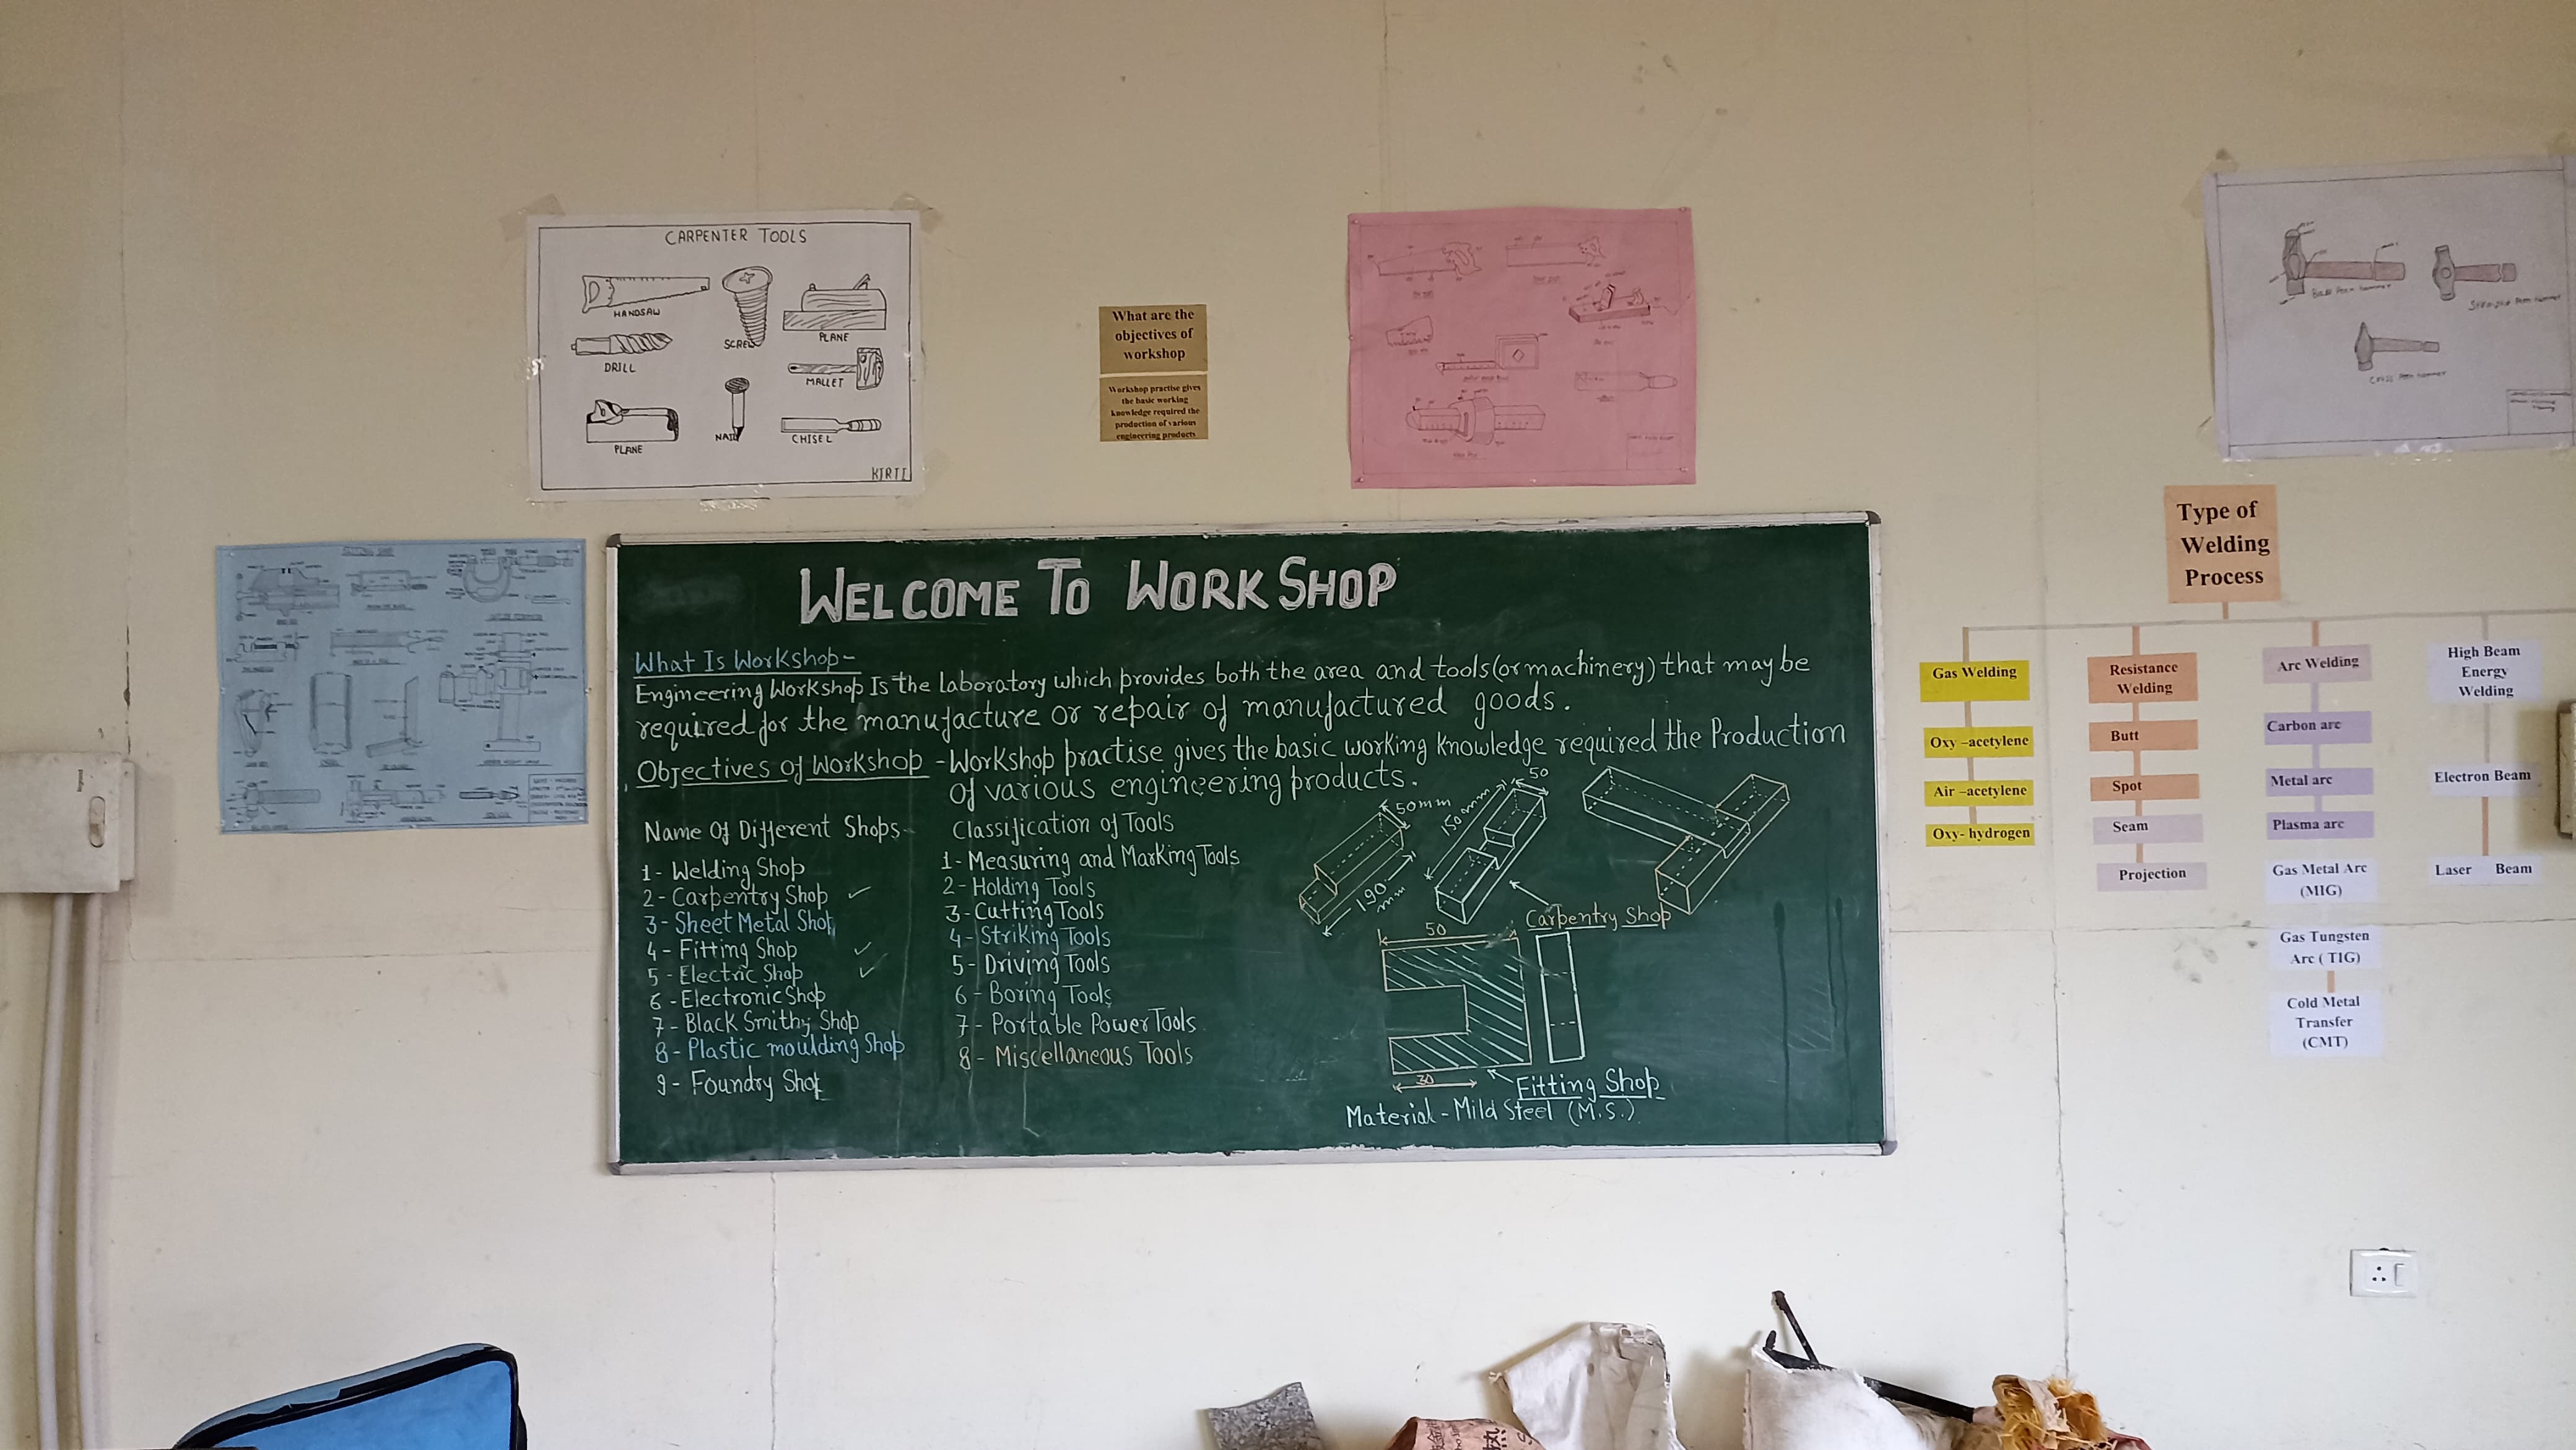 CARPENTER TOOLS
HANDSAW
SCREW
PLANE
DRILL
MALLET
PLANE
NAIL
CHISEL
KIRTI
What are the
objectives of
workshop
Workshop practise gives
the basic working
knowledge required the
production of various
engineering products
Ball Peen hammer
Cross Peen hammer
WELCOME TO WORK SHOP
What Is Workshop-
Engineering Workshop Is the laboratory which provides both the area and tools(or machinery) that may be
required for the manufacture or repair of manufactured goods.
Objectives of Workshop - Workshop practise gives the basic working knowledge required the Production
of various engineering products.
Name Of Different Shops-
1- Welding Shop
2- Carpentry Shop ✓
3- Sheet Metal Shop
4- Fitting Shop ✓
5- Electric Shop ✓
6- Electronic Shop
7- Black Smithy Shop
8- Plastic moulding Shop
9- Foundry Shop
Classification of Tools
1- Measuring and Marking Tools
2- Holding Tools
3- Cutting Tools
4- Striking Tools
5- Driving Tools
6- Boring Tools
7- Portable Power Tools
8- Miscellaneous Tools
50mm
190
mm
150mm
50
Carpentry Shop
50
30
Fitting Shop
Material - Mild Steel (M.S.)
Type of
Welding
Process
Gas Welding
Oxy –acetylene
Air –acetylene
Oxy- hydrogen
Resistance
Welding
Butt
Spot
Seam
Projection
Arc Welding
Carbon arc
Metal arc
Plasma arc
Gas Metal Arc
(MIG)
Gas Tungsten
Arc ( TIG)
Cold Metal
Transfer
(CMT)
High Beam
Energy
Welding
Electron Beam
Laser Beam